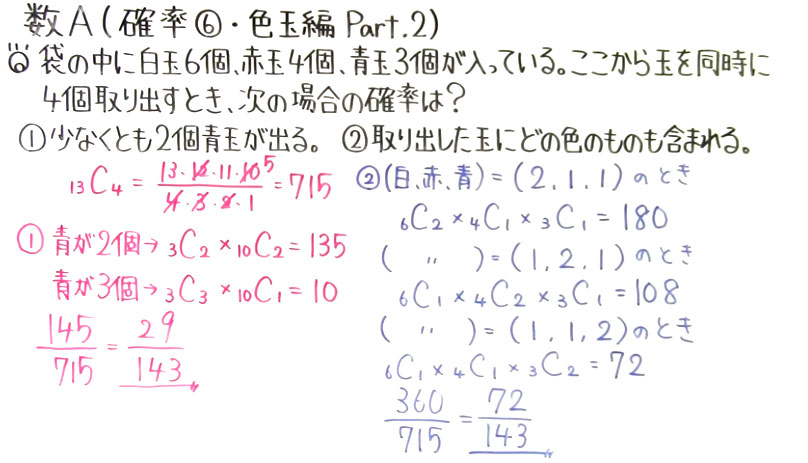 数A(確率⑥・色玉編 Part.2)
袋の中に白玉6個、赤玉4個、青玉3個が入っている。ここから玉を同時に
4個取り出すとき、次の場合の確率は？
①少なくとも2個青玉が出る。 ②取り出した玉にどの色のものも含まれる。
₁₃C₄ = 13·12·11·10⁵/4·3·2·1 = 715
①青が2個→₃C₂×₁₀C₂=135
青が3個→₃C₃×₁₀C₁=10
145/715 = 29/143
②(白、赤、青)=(2,1,1)のとき
₆C₂×₄C₁×₃C₁=180
( 〃 )=(1,2,1)のとき
₆C₁×₄C₂×₃C₁=108
( 〃 )=(1,1,2)のとき
₆C₁×₄C₁×₃C₂=72
360/715 = 72/143